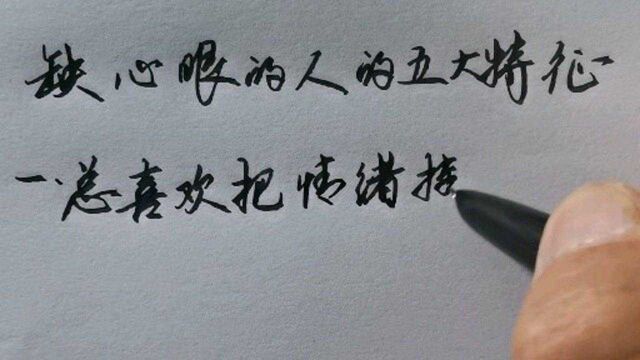 缺心眼的人的五大特征
一.总喜欢把情绪挂